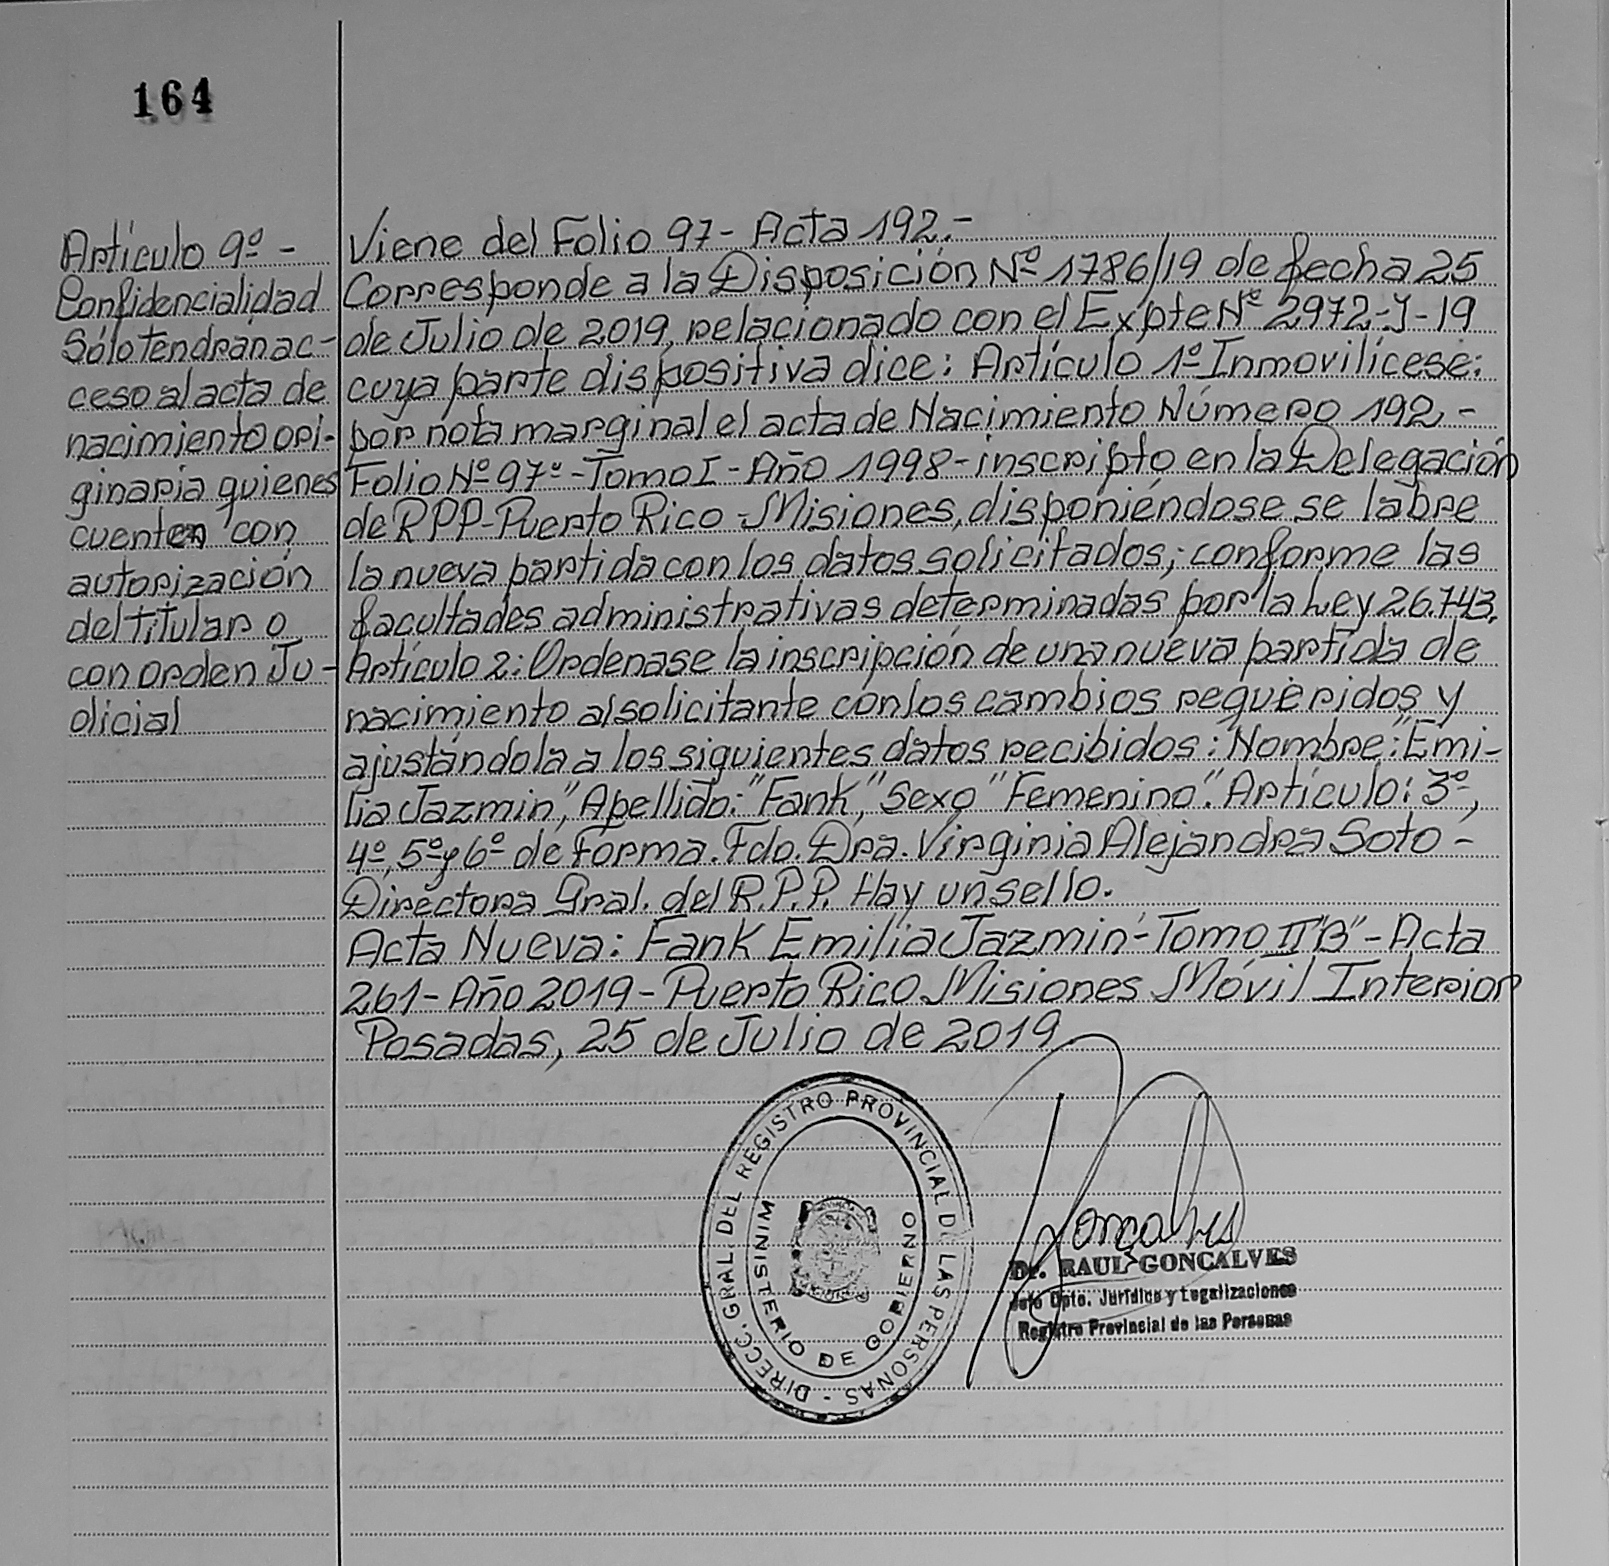 164
Artículo 9º -
Confidencialidad
Sólo Tendrán ac-
ceso al acta de
nacimiento ori-
ginaria quienes
cuenten con
autorización
del Titular o
con orden Ju-
dicial
Viene del Folio 97- Acta 192.-
Corresponde a la Disposición Nº 1786/19 de fecha 25
de Julio de 2019, relacionado con el Expte Nº 2972-J-19
cuya parte dispositiva dice: Artículo 1º Inmovilícese:
por nota marginal el acta de Nacimiento Número 192,-
Folio Nº 97º-Tomo I-Año 1998-inscripto en la Delegación
de RPP-Puerto Rico-Misiones, disponiéndose se labre
la nueva partida con los datos solicitados; conforme las
facultades administrativas determinadas por la Ley 26.743.
Artículo 2: Ordenase la inscripción de una nueva partida de
nacimiento al solicitante con los cambios requeridos y
ajustándola a los siguientes datos recibidos: Nombre: "Emi-
lia Jazmin", Apellido: "Fank", Sexo "Femenino". Artículo: 3º,
4º, 5º y 6º de forma. Fdo. Dra. Virginia Alejandra Soto-
Directora Gral. del R.P.P. Hay un sello.
Acta Nueva: Fank Emilia Jazmin-Tomo II"B"-Acta
261-Año 2019-Puerto Rico Misiones Móvil Interior
Posadas, 25 de Julio de 2019
DIRECC. GRAL. DEL REGISTRO PROVINCIAL DE LAS PERSONAS -
MINISTERIO DE GOBIERNO
Goncalves
Dr. RAUL GONCALVES
Jefe Dpto. Jurídico y Legalizaciones
Registro Provincial de las Personas